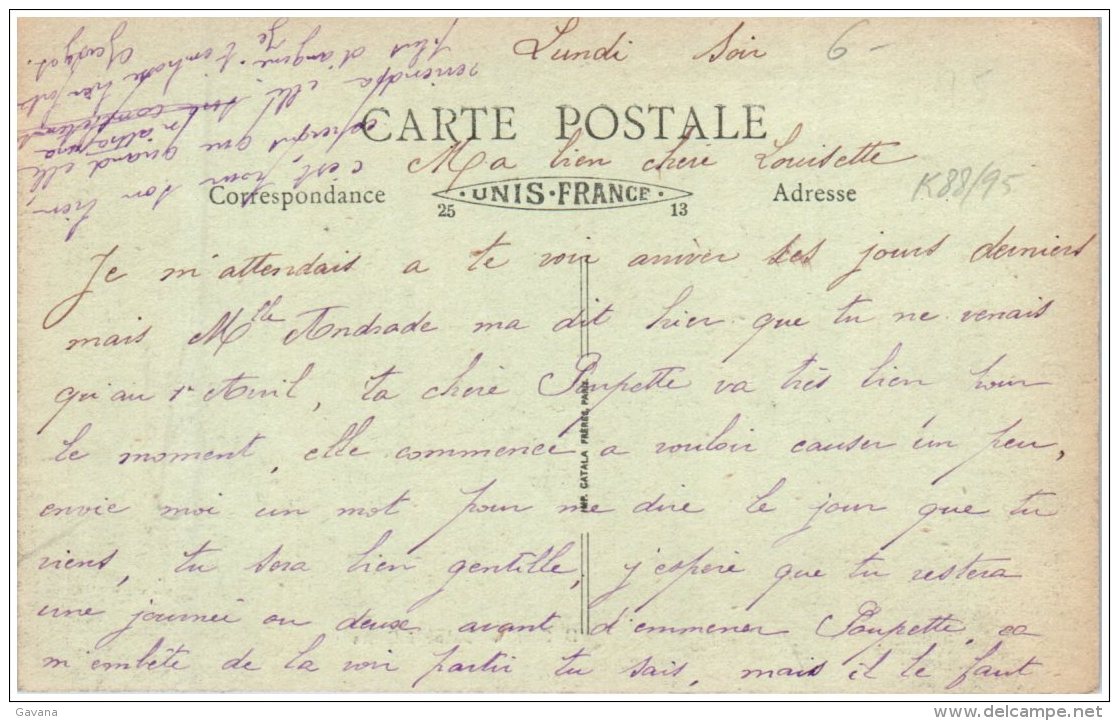 Lundi soir 6-
CARTE POSTALE
Ma bien chère Louisette
Correspondance
UNIS-FRANCE
25 13
Adresse
K88/95
Je m'attendais a te voir arriver ses jours derniers
mais Mlle Andrade ma dit hier que tu ne venais
qu'au 1r Avril, ta chère Poupette va très bien pour
le moment, elle commence a vouloir causer un peu,
envie moi un mot pour me dire le jour que tu
viens, tu sera bien gentille, j'espère que tu restera
une journée ou deux avant d'emmener Poupette, ca
m'embête de la voir partir tu sais, mais il le faut
c'est pour son bien,
esperont que quand elle
reviendra elle n'attrapera
plus d'angine. Je t'embrasse bien fort
IMP. CATALA FRÈRES, PARIS
delcampe.net
Gavana